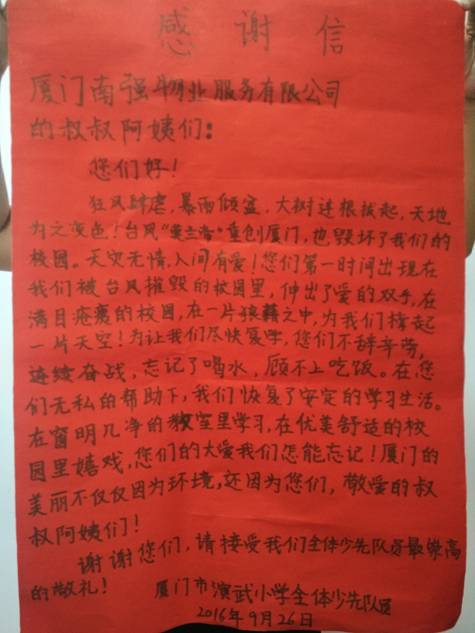 感谢信
厦门南强物业服务有限公司
的叔叔阿姨们：
您们好！
狂风肆虐，暴雨倾盆，大树连根拔起，天地
为之变色！台风“莫兰蒂”重创厦门，也毁坏了我们的
校园。天灾无情，人间有爱！您们第一时间出现在
我们被台风摧毁的校园里，伸出了爱的双手，在
满目疮痍的校园，在一片狼藉之中，为我们撑起
一片天空！为让我们尽快复学，您们不辞辛劳，
连续奋战，忘记了喝水，顾不上吃饭。在您
们无私的帮助下，我们恢复了安定的学习生活。
在窗明几净的教室里学习，在优美舒适的校
园里嬉戏，您们的大爱我们怎能忘记！厦门的
美丽不仅仅因为环境，还因为您们，敬爱的叔
叔阿姨们！
谢谢您们，请接受我们全体少先队员最崇高
的敬礼！
厦门市演武小学全体少先队员
2016年9月26日